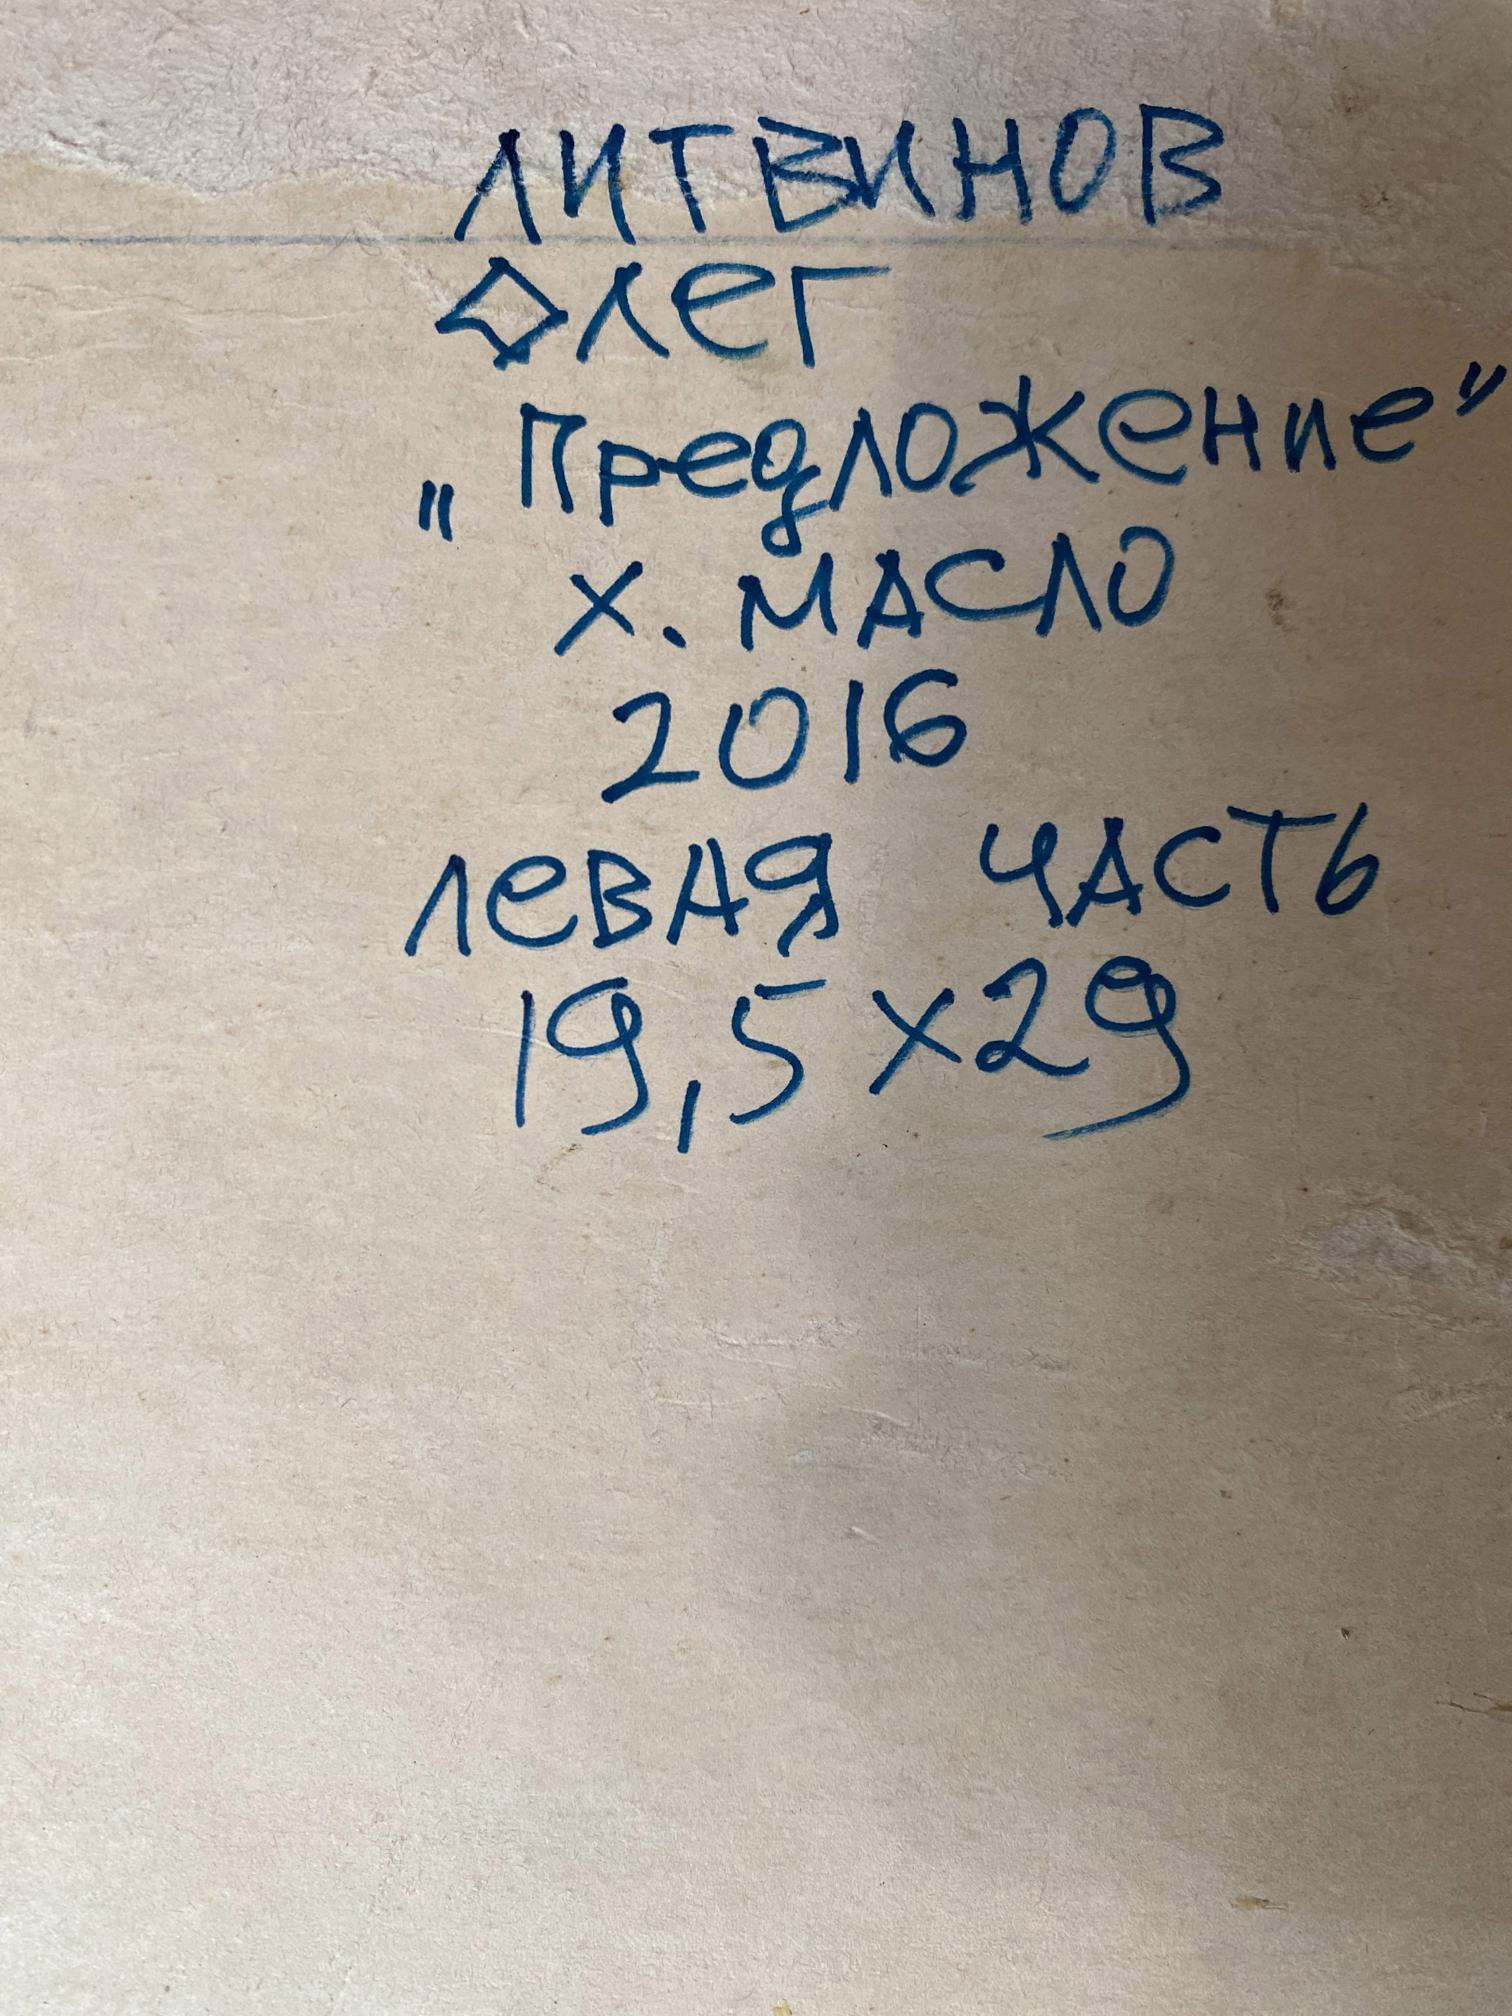 ЛИТВИНОВ
Олег
„Предложение"
Х. МАСЛО
2016
ЛеВАЯ ЧАСТЬ
19,5 х 29